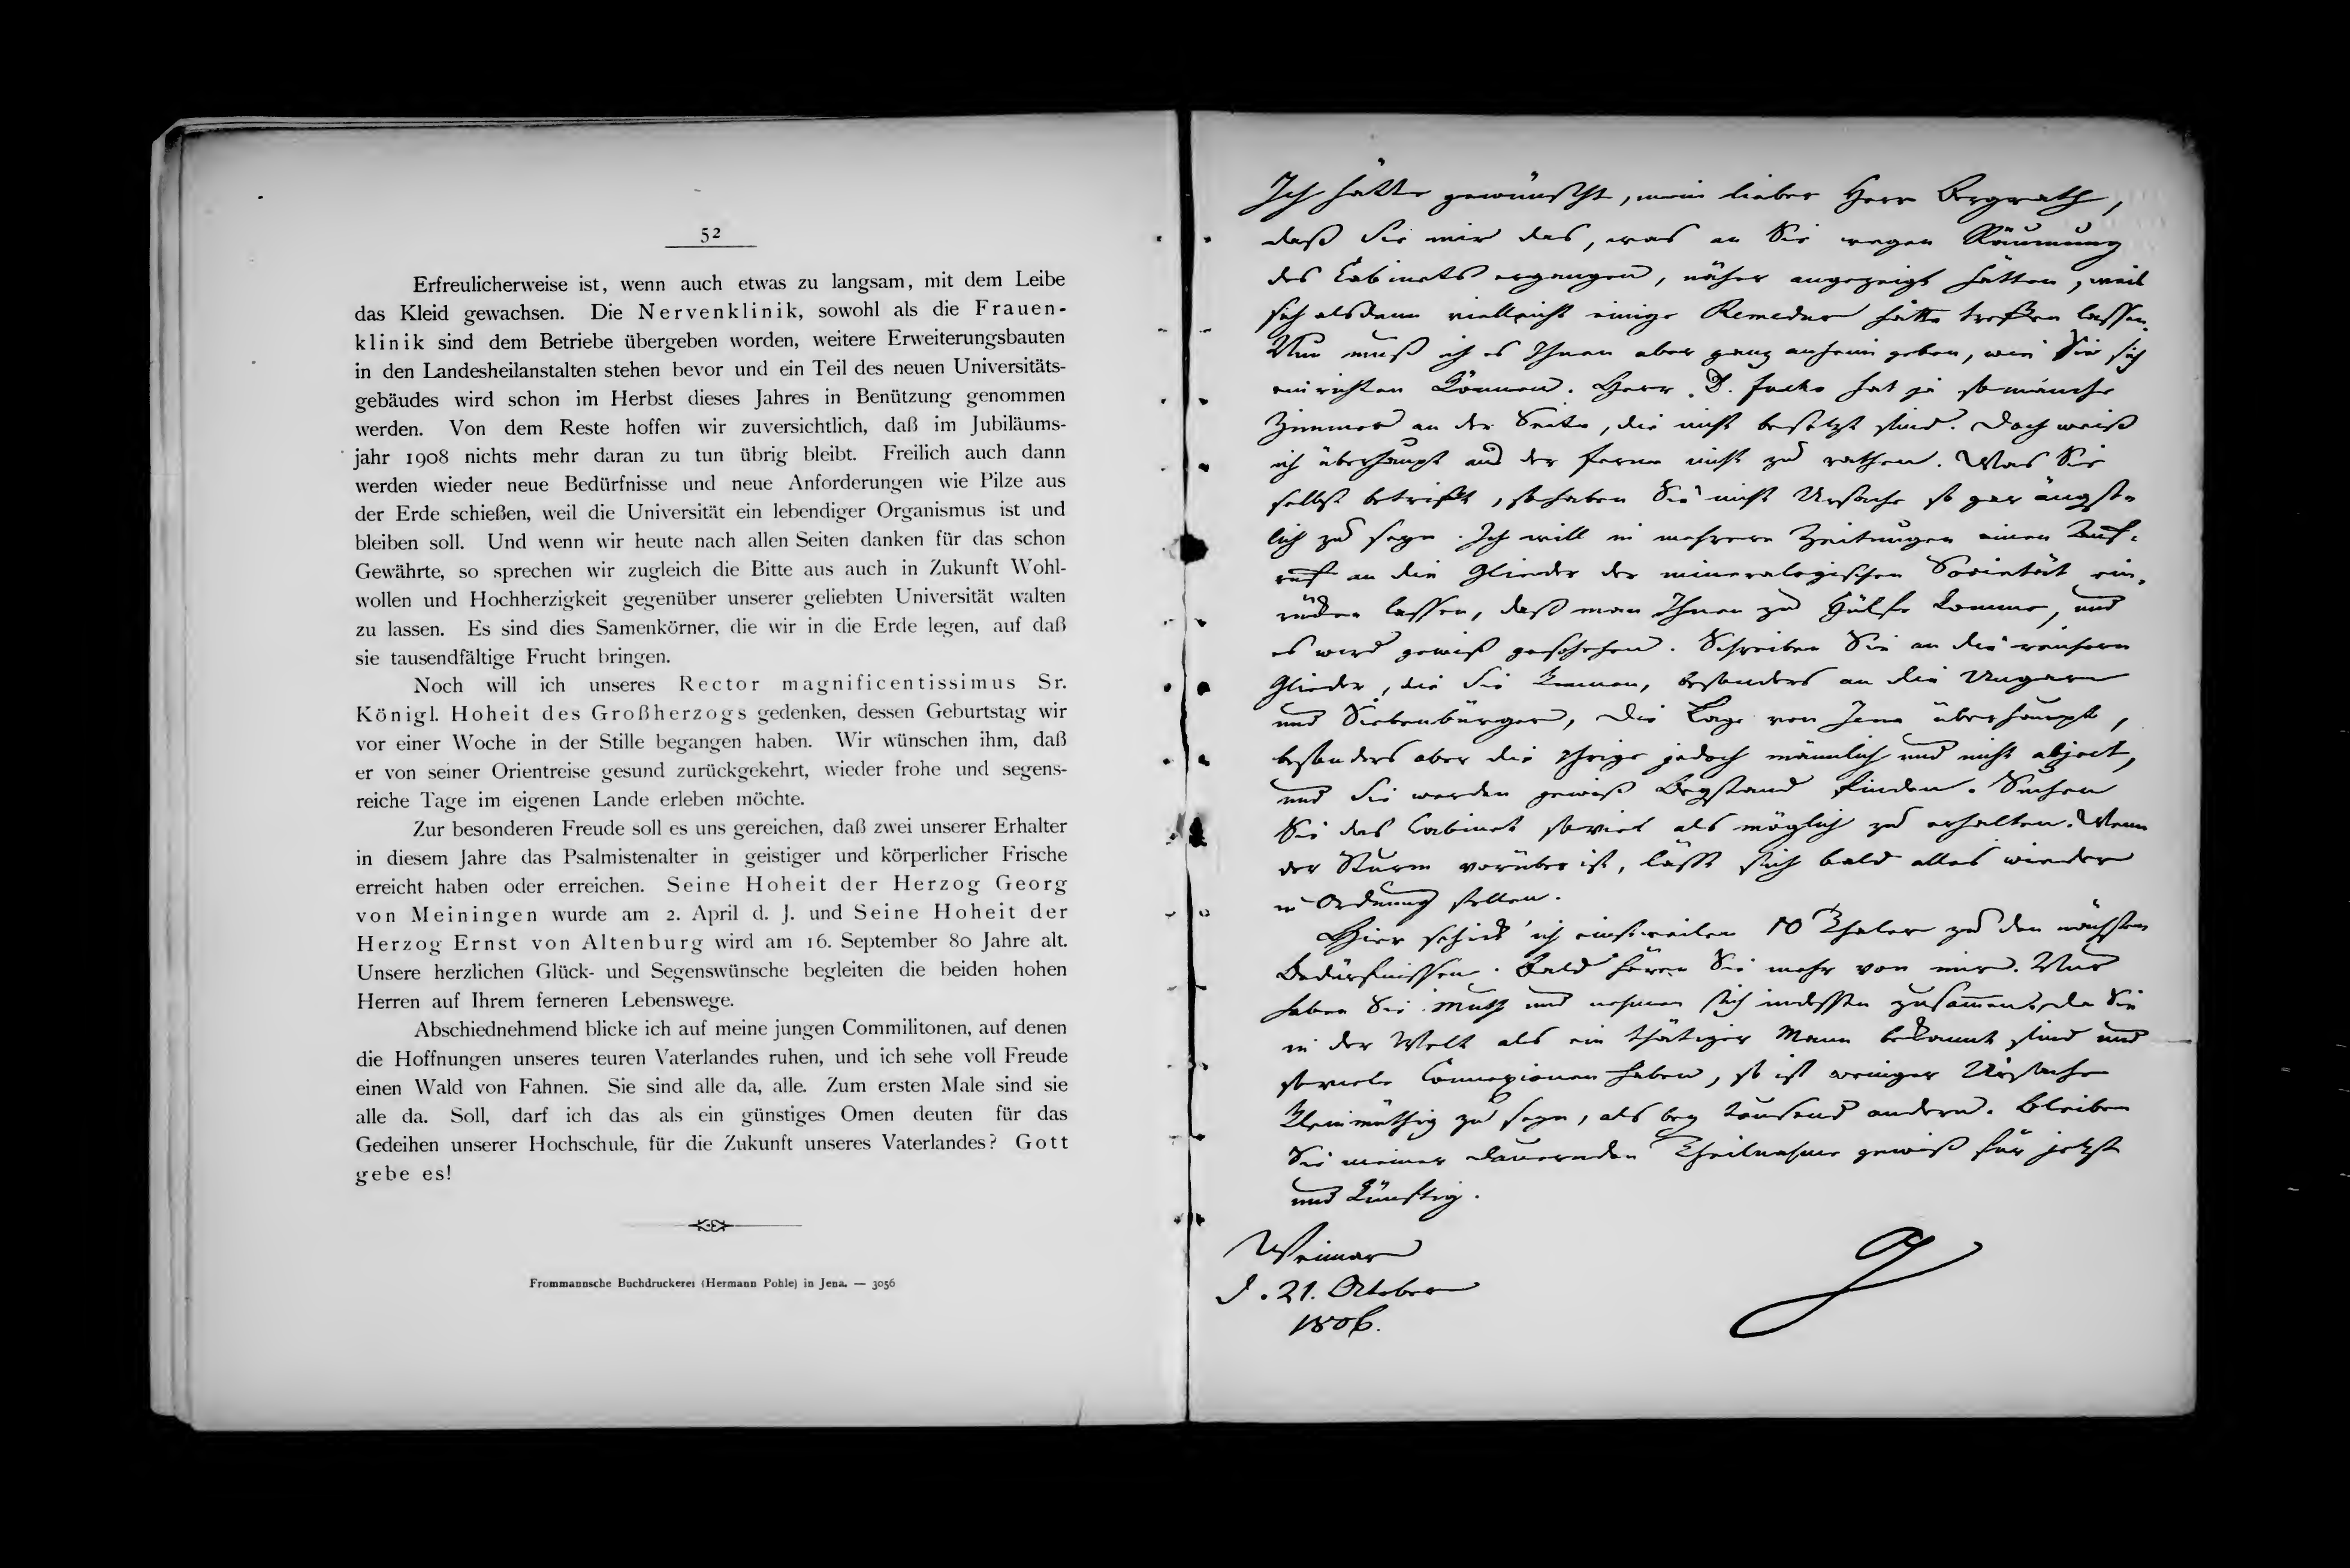 52
Erfreulicherweise ist, wenn auch etwas zu langsam, mit dem Leibe
das Kleid gewachsen. Die Nervenklinik, sowohl als die Frauen-
klinik sind dem Betriebe übergeben worden, weitere Erweiterungsbauten
in den Landesheilanstalten stehen bevor und ein Teil des neuen Universitäts-
gebäudes wird schon im Herbst dieses Jahres in Benützung genommen
werden. Von dem Reste hoffen wir zuversichtlich, daß im Jubiläums-
jahr 1908 nichts mehr daran zu tun übrig bleibt. Freilich auch dann
werden wieder neue Bedürfnisse und neue Anforderungen wie Pilze aus
der Erde schießen, weil die Universität ein lebendiger Organismus ist und
bleiben soll. Und wenn wir heute nach allen Seiten danken für das schon
Gewährte, so sprechen wir zugleich die Bitte aus auch in Zukunft Wohl-
wollen und Hochherzigkeit gegenüber unserer geliebten Universität walten
zu lassen. Es sind dies Samenkörner, die wir in die Erde legen, auf daß
sie tausendfältige Frucht bringen.
Noch will ich unseres Rector magnificentissimus Sr.
Königl. Hoheit des Großherzogs gedenken, dessen Geburtstag wir
vor einer Woche in der Stille begangen haben. Wir wünschen ihm, daß
er von seiner Orientreise gesund zurückgekehrt, wieder frohe und segens-
reiche Tage im eigenen Lande erleben möchte.
Zur besonderen Freude soll es uns gereichen, daß zwei unserer Erhalter
in diesem Jahre das Psalmistenalter in geistiger und körperlicher Frische
erreicht haben oder erreichen. Seine Hoheit der Herzog Georg
von Meiningen wurde am 2. April d. J. und Seine Hoheit der
Herzog Ernst von Altenburg wird am 16. September 80 Jahre alt.
Unsere herzlichen Glück- und Segenswünsche begleiten die beiden hohen
Herren auf Ihrem ferneren Lebenswege.
Abschiednehmend blicke ich auf meine jungen Commilitonen, auf denen
die Hoffnungen unseres teuren Vaterlandes ruhen, und ich sehe voll Freude
einen Wald von Fahnen. Sie sind alle da, alle. Zum ersten Male sind sie
alle da. Soll, darf ich das als ein günstiges Omen deuten für das
Gedeihen unserer Hochschule, für die Zukunft unseres Vaterlandes? Gott
gebe es!
Frommannsche Buchdruckerei (Hermann Pohle) in Jena. — 3056
Ich hätte gewünscht, mein lieber Herr Bergrath,
daß Sie mir das, was an Sie wegen Räumung
des Cabinets ergangen, näher angezeigt hätten, weil
sich alsdann vielleicht einige Remedur hätte treffen lassen.
Nun muß ich es Ihnen aber ganz anheim geben, wie Sie sich
einrichten können. Herr D. Fuchs hat ja so manche
Zimmer an der Seite, die nicht besetzt sind. Doch weiß
ich überhaupt aus der Ferne nicht zu rathen. Was Sie
selbst betrifft, so haben Sie nicht Ursache so gar ängst-
lich zu seyn. Ich will in mehrern Zeitungen einen Auf-
ruf an die Glieder der mineralogischen Societät ein-
rücken lassen, daß man Ihnen zu Hülfe komme, und
es wird gewiß geschehen. Schreiben Sie an die reichern
Glieder, die Sie kennen, besonders an die Ungarn
und Siebenbürgen, die Lage von Jena überhaupt,
besonders aber die Ihrige jedoch männlich und nicht abject,
und Sie werden gewiß Beystand finden. Suchen
Sie das Cabinet soviel als möglich zu erhalten. Wenn
der Sturm vorüber ist, läßt sich bald alles wieder
in Ordnung stellen.
Hier schick' ich einstweilen 10 Thaler zu den nächsten
Bedürfnissen. Bald hören Sie mehr von mir. Nur
haben Sie Muth und nehmen sich indessen zusammen. da Sie
in der Welt als ein thätiger Mann bekannt sind und
soviele Connexionen haben, so ist weniger Ursache
kleinmüthig zu seyn, als bey tausend andern. Bleiben
Sie meiner dauernden Theilnahme gewiß für jetzt
und künftig.
Weimar
d. 21. October
1806.
G